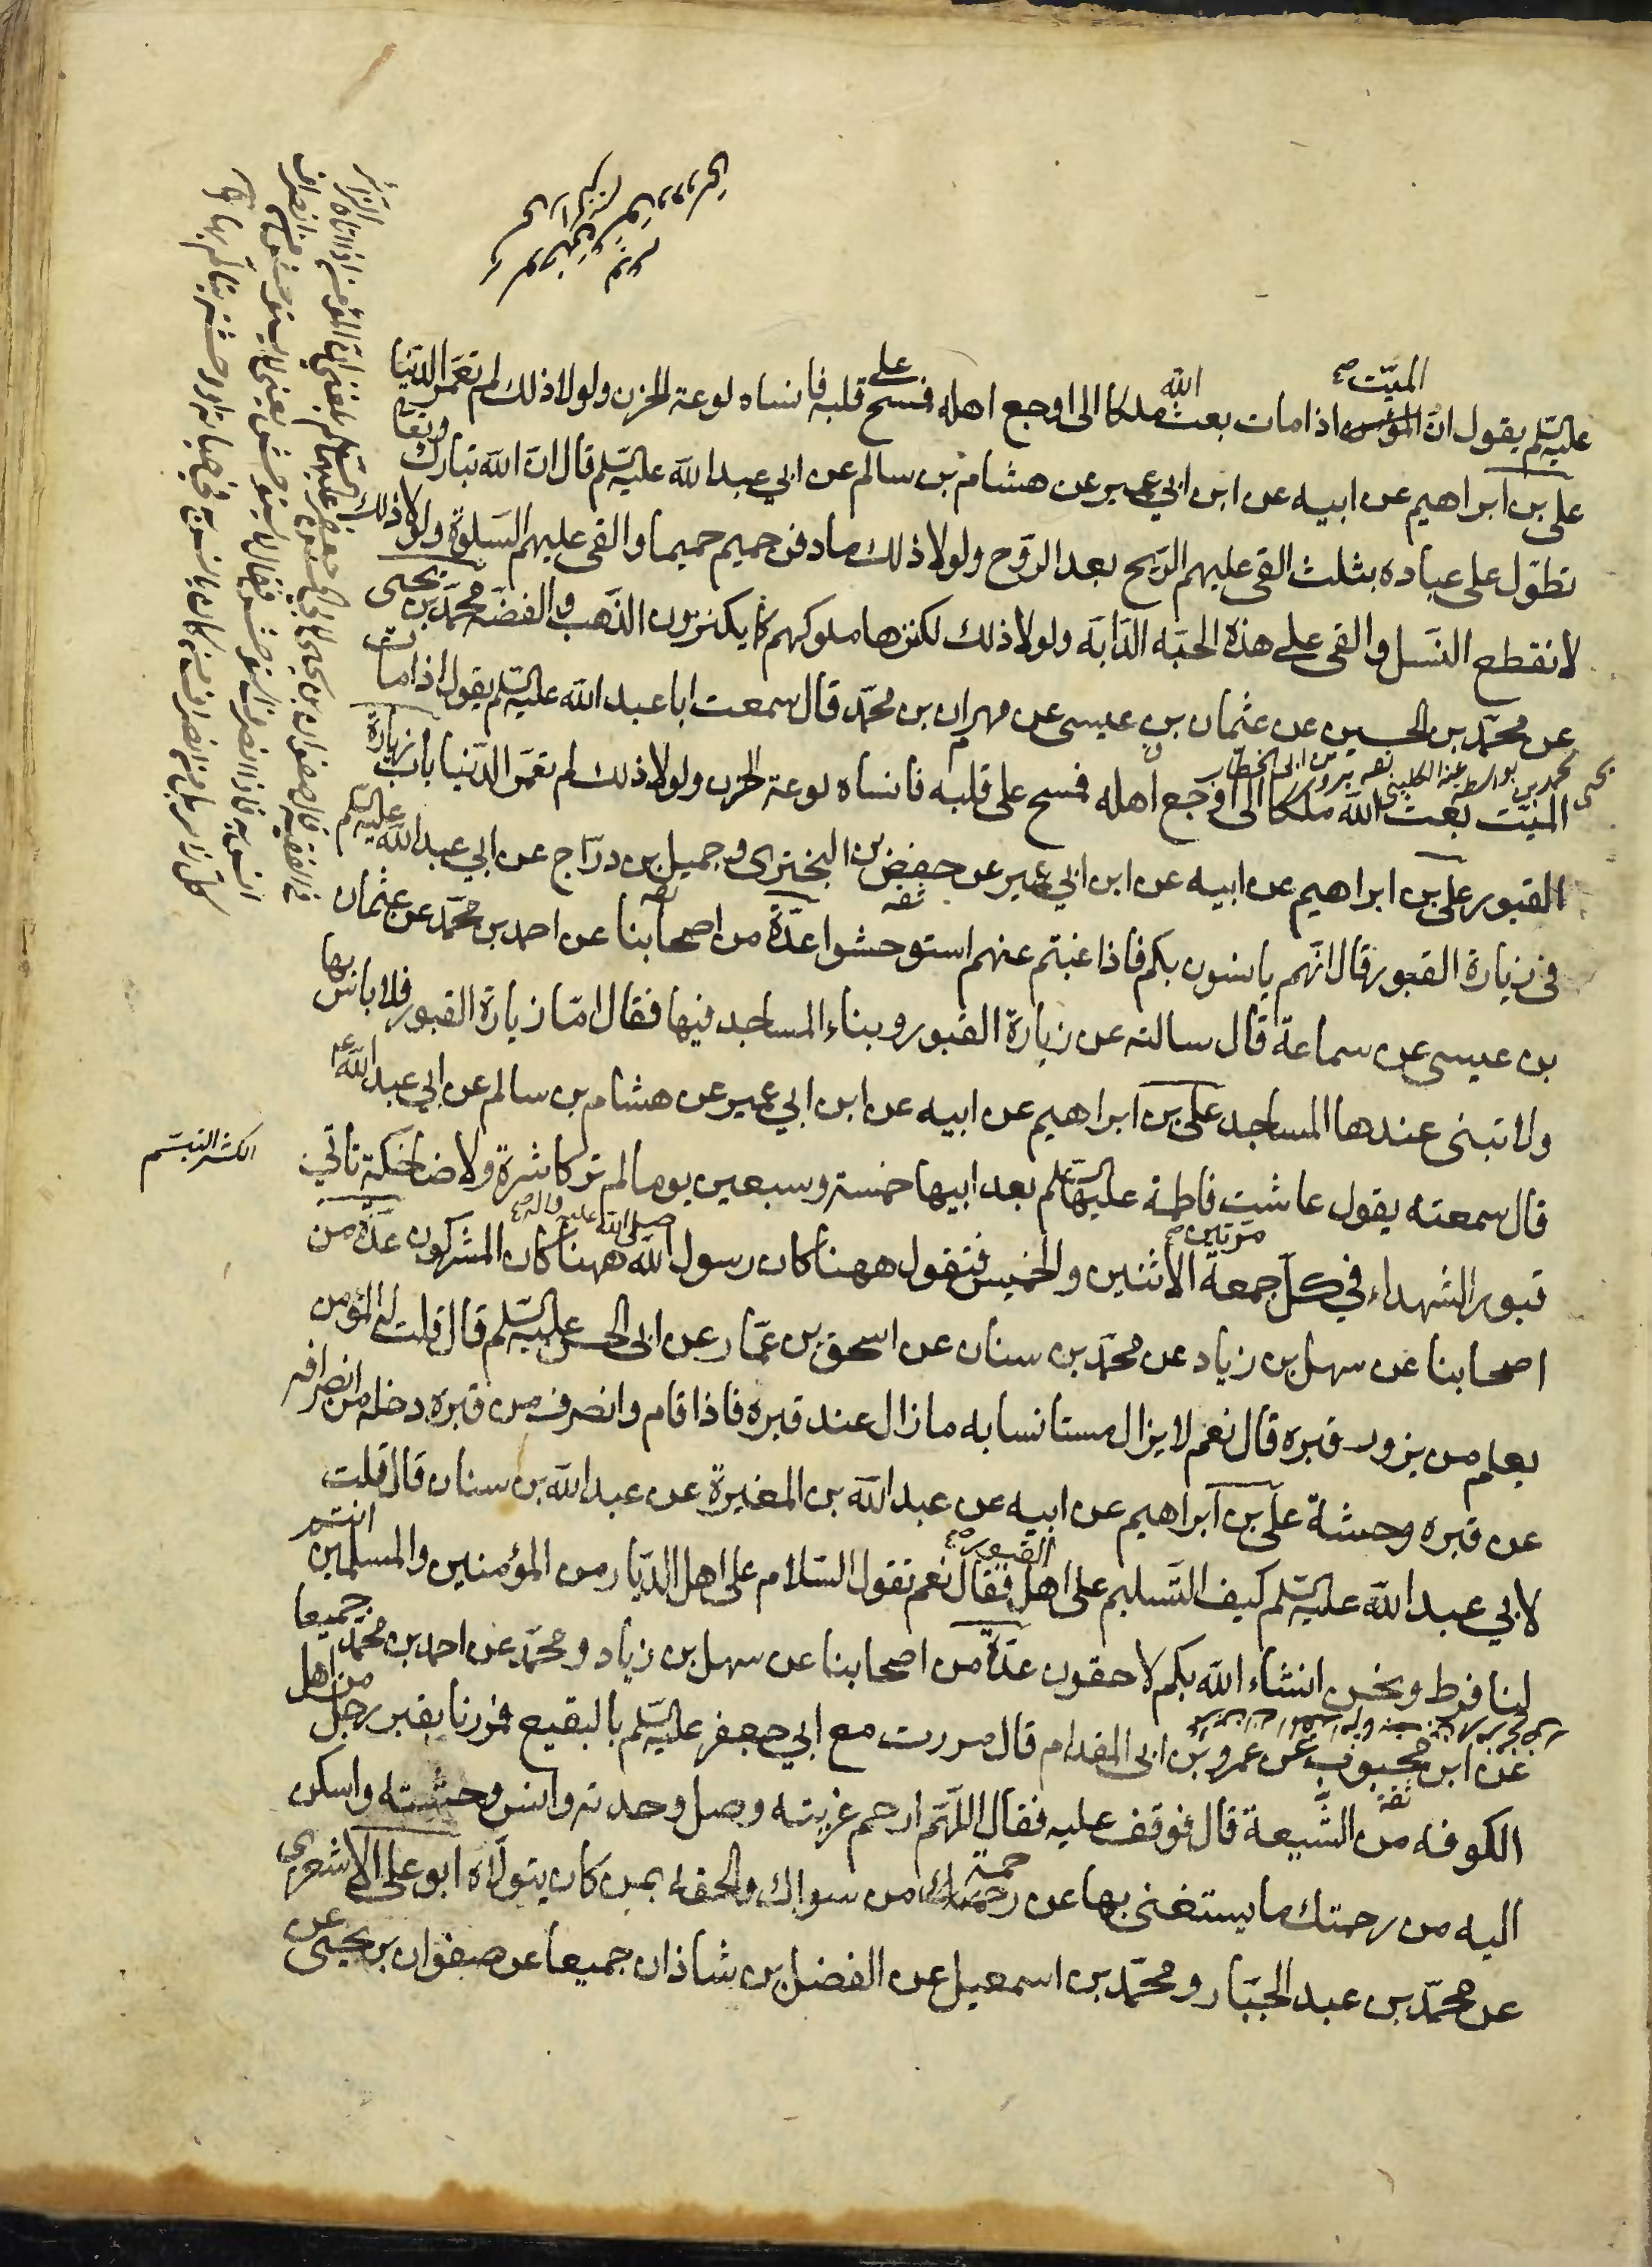 عليه السلم يقول ان المؤمن الميت اذا مات بعث الله ملكا الى اوجع اهله فمسح على قلبه فانساه لوعة الحزن ولولا ذلك لم تعمر الدنيا
على بن ابراهيم عن ابيه عن ابن ابي عمير عن هشام بن سالم عن ابي عبد الله عليه السلم قال ان الله تبارك وتعالى
تطول على عباده بثلث القى عليهم الريح بعد الروح ولولا ذلك ما دفن حميم حميما والقى عليهم السلوة ولولا ذلك
لانقطع النسل والقى على هذه الحبة الدابة ولولا ذلك لكنزها ملوكهم كما يكنزون الذهب والفضة محمد بن يحيى
عن محمد بن الحسين عن عثمان بن عيسى عن مهران بن محمد قال سمعت ابا عبد الله عليه السلم يقول اذا مات
الميت بعث الله ملكا الى اوجع اهله فمسح على قلبه فانساه لوعة الحزن ولولا ذلك لم تعمر الدنيا باب زيارة
القبور على بن ابراهيم عن ابيه عن ابن ابي عمير عن حفص بن البخترى وجميل بن دراج عن ابي عبد الله عليه السلم
في زيارة القبور قال انهم يانسون بكم فاذا غبتم عنهم استوحشوا عدة من اصحابنا عن احمد بن محمد عن عثمان
بن عيسى عن سماعة قال سالته عن زيارة القبور وبناء المساجد فيها فقال اما زيارة القبور فلا باس بها
ولا تبنى عندها المساجد على بن ابراهيم عن ابيه عن ابن ابي عمير عن هشام بن سالم عن ابي عبد الله ع
قال سمعته يقول عاشت فاطمة عليها السلم بعد ابيها خمسة وسبعين يوما لم تر كاشرة ولا ضاحكة تاتي
الكشر التبسم
قبور الشهداء في كل جمعة مرتين الاثنين والخميس فتقول ههنا كان رسول الله صلى الله عليه واله ههنا كان المشركون عدة من
اصحابنا عن سهل بن زياد عن محمد بن سنان عن اسحق بن عمار عن ابى الحسن عليه السلم قال قلت له المؤمن
يعلم من يزور قبره قال نعم لا يزال مستانسا به ما زال عند قبره فاذا قام وانصرف من قبره دخله من انصرافه
عن قبره وحشة على بن ابراهيم عن ابيه عن عبد الله بن المغيرة عن عبد الله بن سنان قال قلت
لابي عبد الله عليه السلم كيف التسليم على اهل القبور فقال نعم تقول السلام على اهل الديار من المؤمنين والمسلمين انتم
لنا فرط ونحن انشاء الله بكم لاحقون عدة من اصحابنا عن سهل بن زياد ومحمد عن احمد بن محمد جميعا
عن ابن محبوب عن عمرو بن ابى المقدام قال مررت مع ابي جعفر عليه السلم بالبقيع فمررنا بقبر رجل من اهل
الكوفة من الشيعة قال فوقف عليه فقال اللهم ارحم غربته وصل وحدته وانس وحشته واسكن
اليه من رحمتك ما يستغنى بها عن رحمة من سواك والحقه بمن كان يتولاه ابو على الاشعرى
عن محمد بن عبد الجبار ومحمد بن اسمعيل عن الفضل بن شاذان جميعا عن صفوان بن يحيى عن